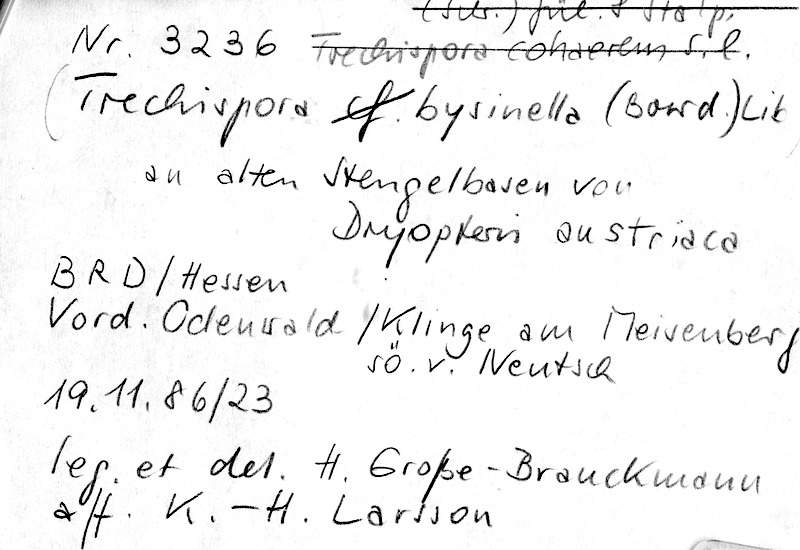 (Schw.) Jül. & Stalp.
Nr. 3236 Trechispora cohaerens s.l.
(Trechispora cf. bysinella (Bourd.) Lib
an alten Stengelbasen von
Dryopteris austriaca
BRD/Hessen
Vord. Odenwald /Klinge am Meisenberg
sö. v. Neutsch
19.11.86/23
leg. et det. H. Große-Brauckmann
aff. K.-H. Larsson